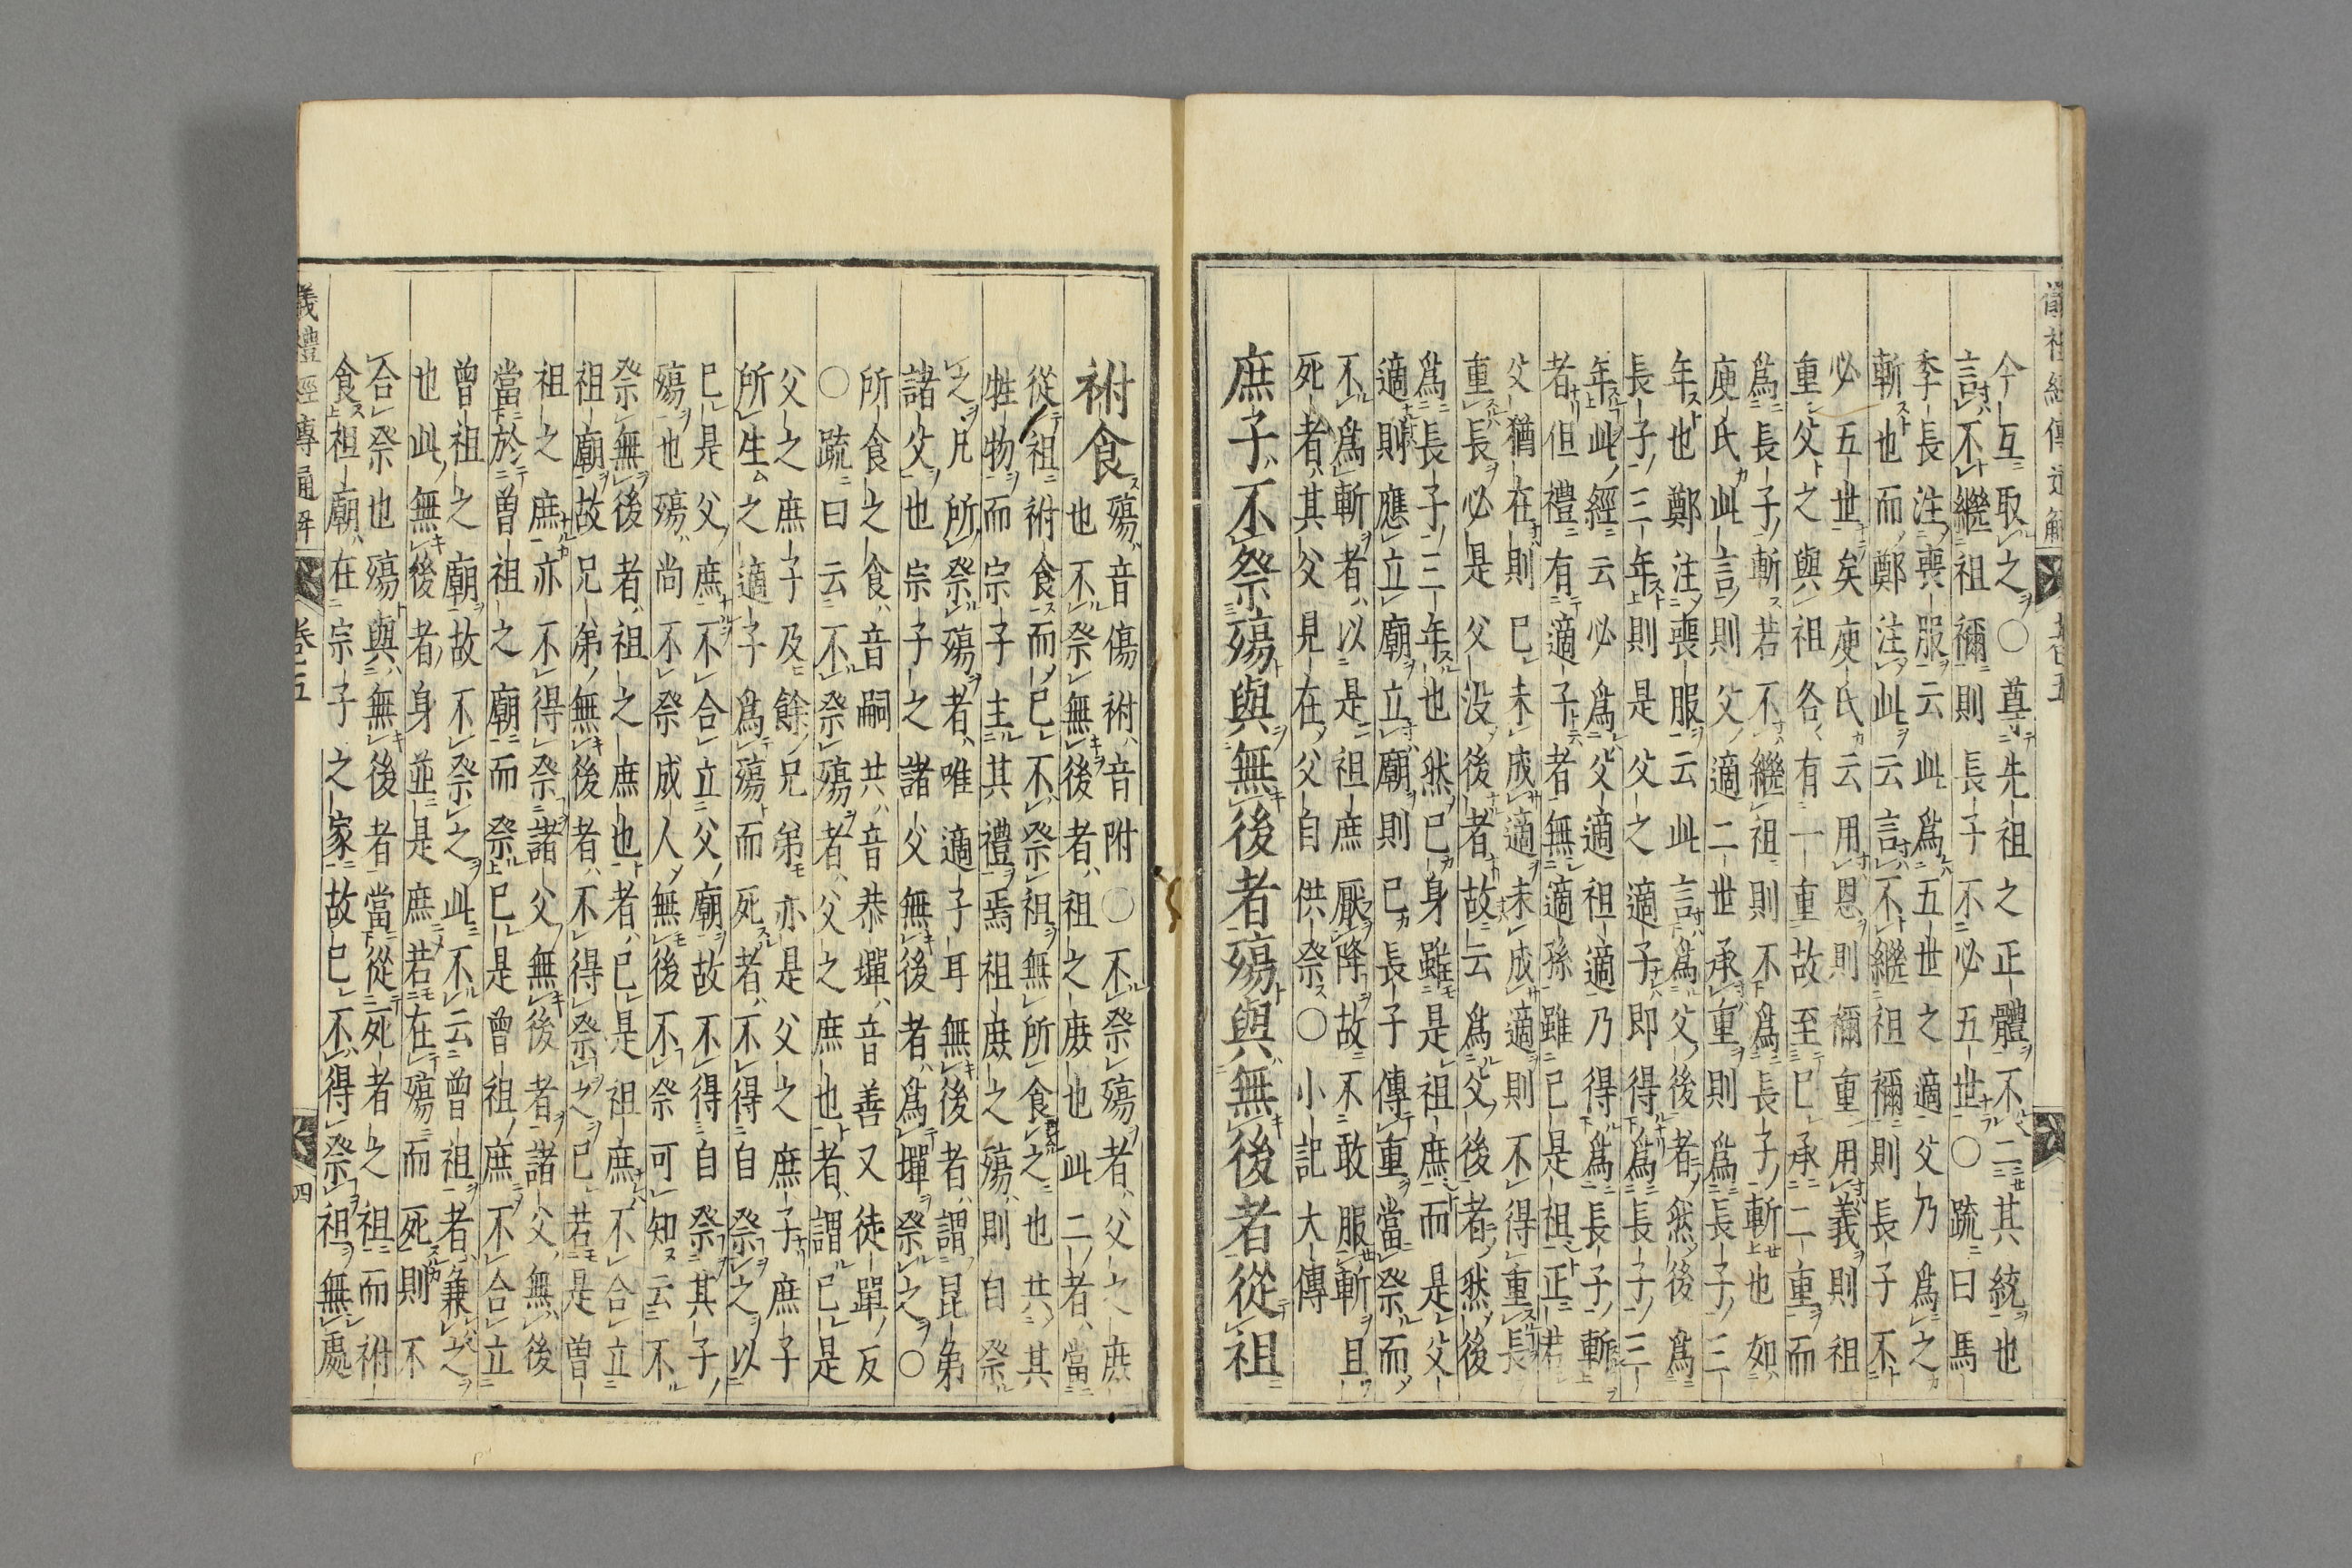 儀禮經傳通解 卷五
今互取之○尊先祖之正體不二其統也
言不繼祖禰則長子不必五世○疏曰馬
季長注喪服云此爲五世之適父乃爲之
斬也而鄭注此云言不繼祖禰則長子不
必五世矣庾氏云用恩則禰重用義則祖
重父之與祖各有一重故至已承二重而
爲長子斬若不繼祖則不爲長子斬也如
庾氏此言則父適二世承重則爲長子三
年也鄭注喪服云此言爲父後者然後爲
長子三年則是父之適子即得爲長子三
年此經云必爲父適祖適乃得爲長子斬
者但禮有適子者無適孫雖已是祖正若
父猶在則已未成適未成適則不得重長
重長必是父没後者故云爲父後者然後
爲長子三年也然已身雖是祖庶而是父
適則應立廟立廟則已長子傳重當祭而
不爲斬者以是祖庶厭降故不敢服斬且
死者其父見在父自供祭○小記大傳
庶子不祭殤與無後者殤與無後者從祖
祔食
殤音傷祔音附○不祭殤者父之庶
也不祭無後者祖之庶也此二者當
從祖祔食而已不祭祖無所食之也共其
牲物而宗子主其禮焉祖庶之殤則自祭
之凡所祭殤者唯適子耳無後者謂昆弟
諸父也宗子之諸父無後者爲墠祭之○
所食之食音嗣共音恭墠音善又徒單反
○疏曰云不祭殤者父之庶也者謂已是
父之庶子及餘兄弟亦是父之庶子庶子
所生之適子爲殤而死者不得自祭之以
已是父庶不合立父廟故不得自祭其子
殤也殤尚不祭成人無後不祭可知云不
祭無後者祖之庶也者已是祖庶不合立
祖廟故兄弟無後者不得祭之已若是曾
祖之庶亦不得祭諸父無後者諸父無後
當於曾祖之廟而祭已是曾祖庶不合立
曾祖之廟故不祭之此不云曾祖者兼之
也此無後者身並是庶若在殤而死則不
合祭也殤與無後者當從死者之祖而祔
食祖廟在宗子之家故已不得祭祖無處
儀禮經傳通解 卷五 四